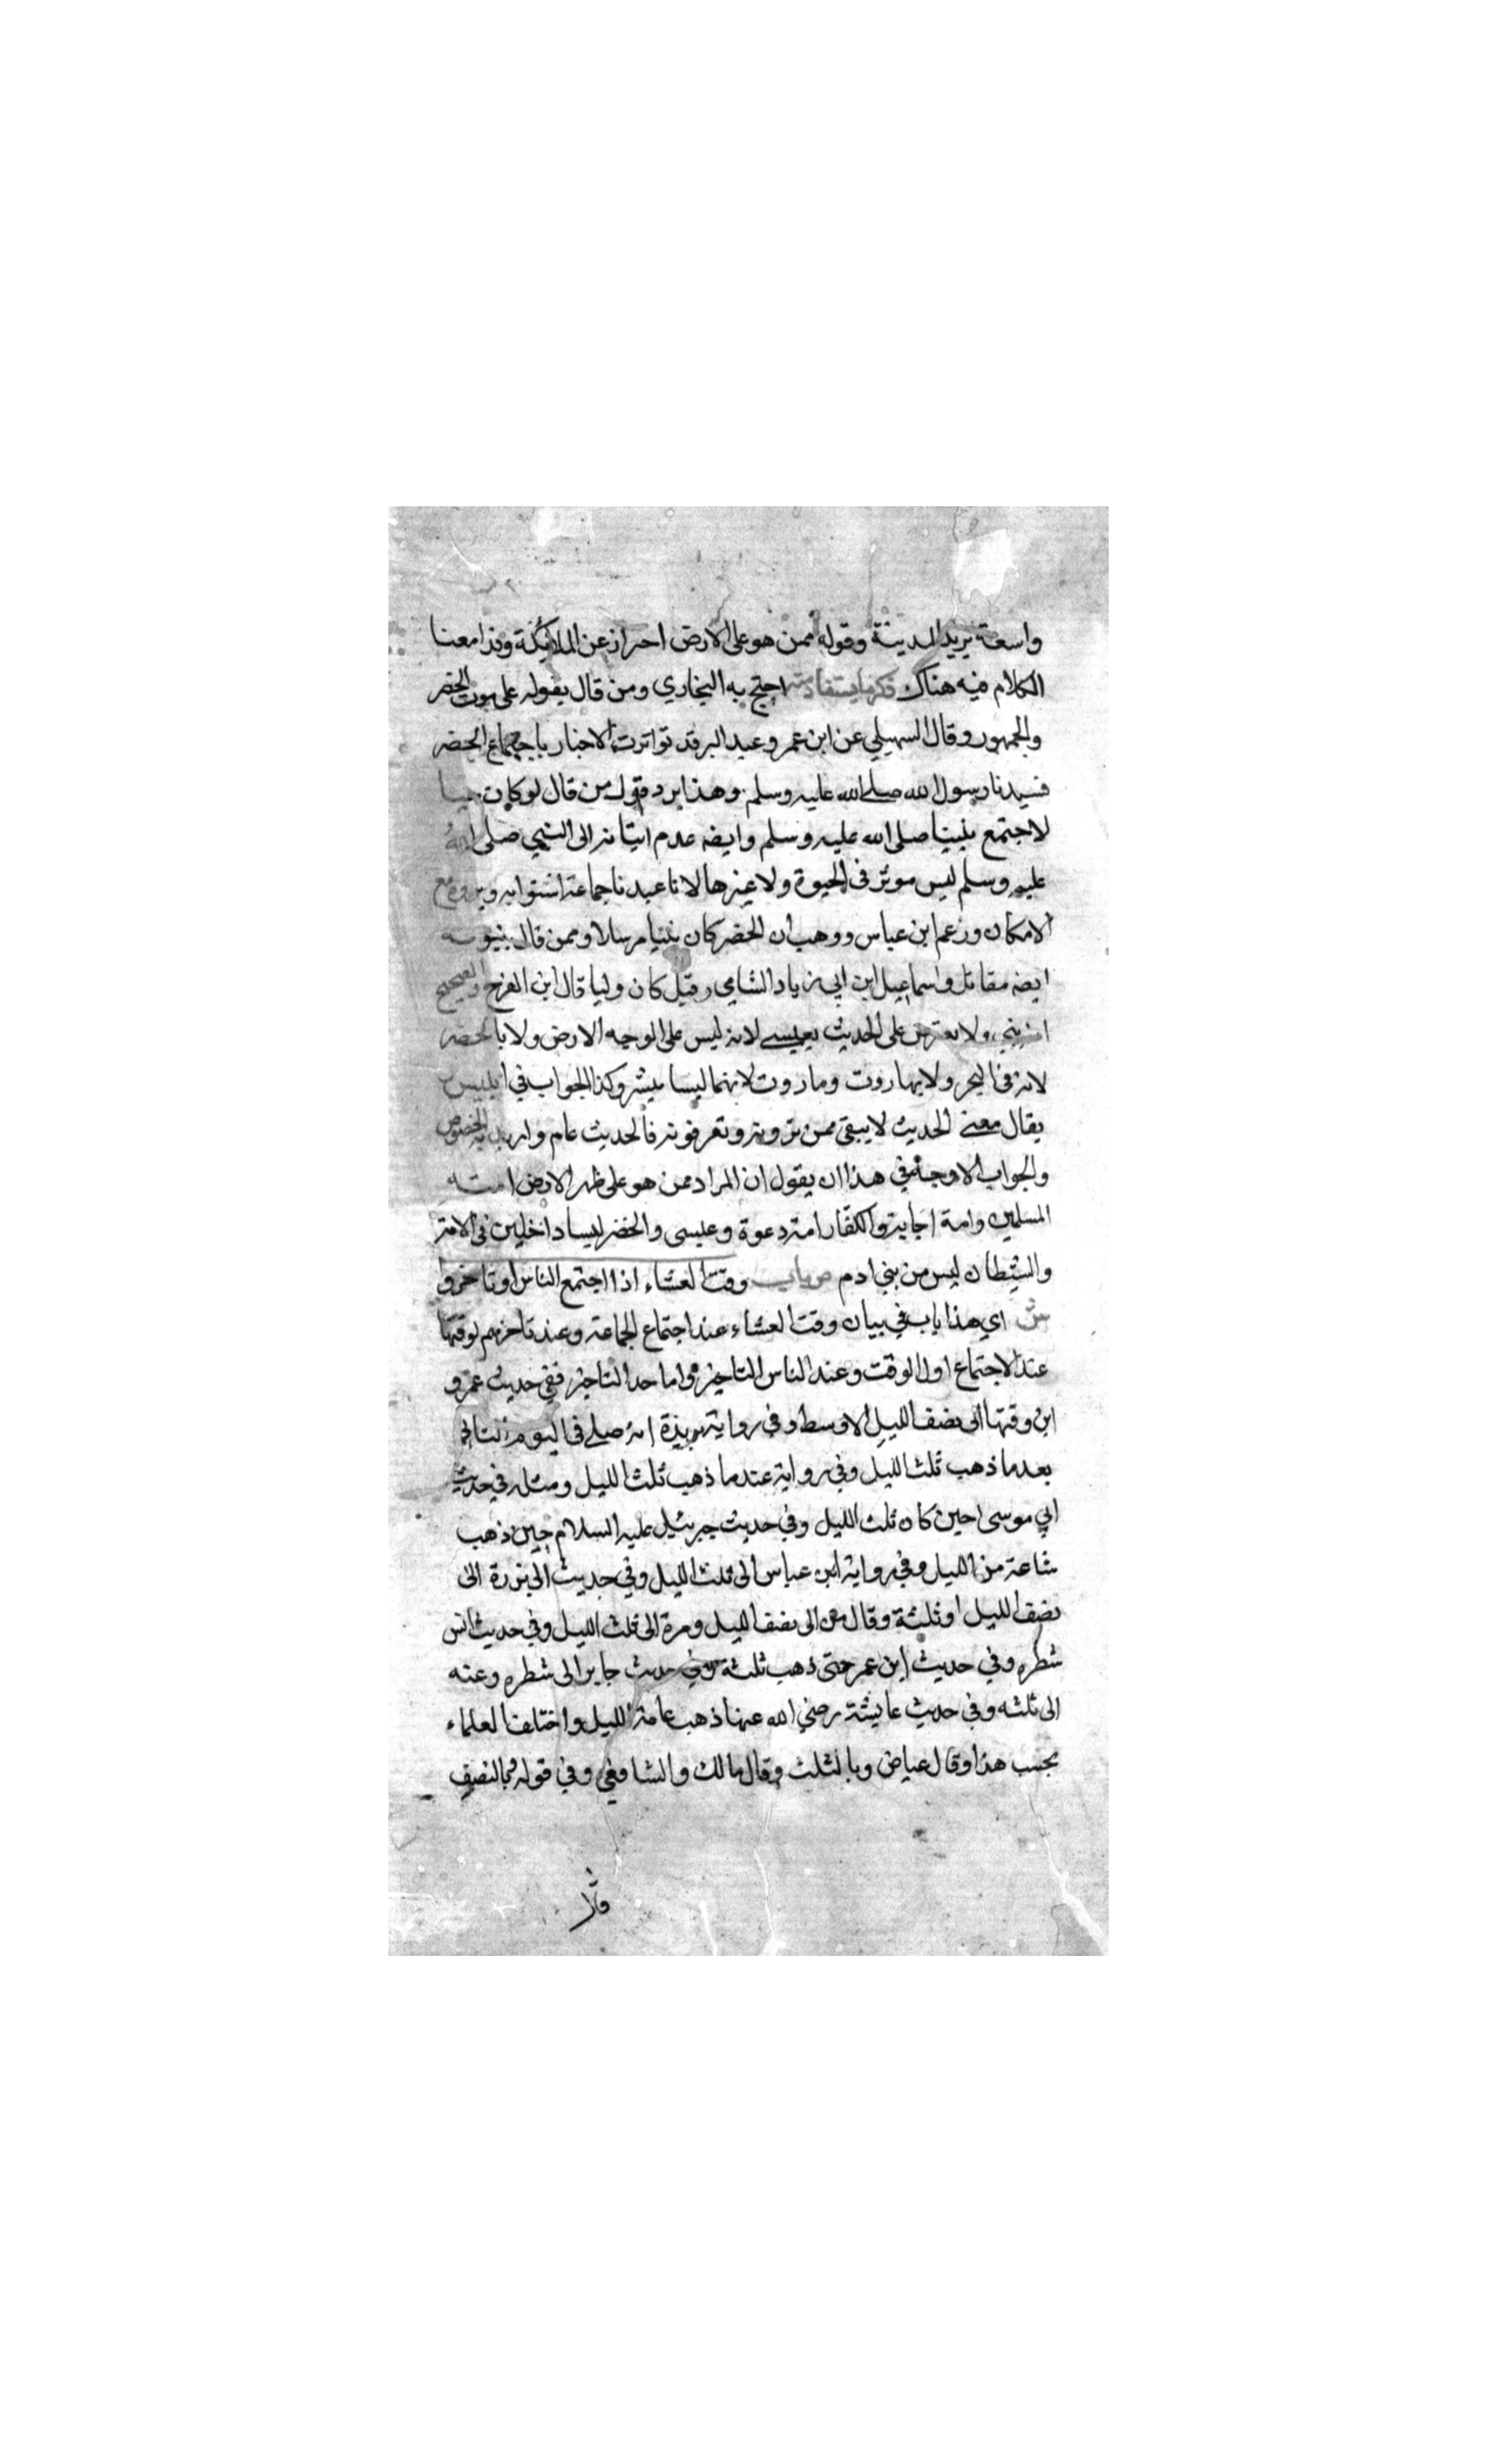 واسعة يريد المدينة وقوله ممن هو على الارض احتراز عن الملائكة وقد امعنا
الكلام فيه هناك ذكر ما يستفاد منه احتج به البخاري ومن قال بقوله على موت الخضر
والجمهور وقال السهيلي عن ابن عمر وعبد البر قد تواترت الاخبار باجتماع الخضر
فسيدنا رسول الله صلى الله عليه وسلم وهذا يرد قول من قال لو كان حيا
لاجتمع بنبينا صلى الله عليه وسلم وايضه عدم اتيانه الى النبي صلى الله
عليه وسلم ليس موثر في الحيوة ولا غيرها لانا عهدنا جماعة امنوا به ولم يروه مع
الامكان وزعم ابن عباس ووهب ان الخضر كان نبيا مرسلا وممن قال بنبوته
ايضه مقاتل واسماعيل ابن ابي زياد الشامي وقيل كان وليا قال ابن الفرج والصحيح
انه نبي ولا يعترض على الحديث بعيسى لانه ليس على الوجه الارض ولا بالخضر
لانه في البحر ولا بهاروت وماروت لانهما ليسا ببشر وكذا الجواب في ابليس
يقال معنى الحديث لا يبقى ممن ترونه وتعرفونه فالحديث عام واريد به الخصوص
والجواب الاوجه في هذا ان يقول ان المراد ممن هو على ظهر الارض امته
المسلمين وامة اجابة والكفار امة دعوة وعيسى والخضر ليسا داخلين في الامة
والشيطان ليس من بني ادم ص باب وقت العشاء اذا اجتمع الناس او تاخروا
ش اي هذا باب في بيان وقت العشاء عند اجتماع الجماعة وعند تاخرهم لوقتها
عند الاجتماع اول الوقت وعند الناس التاخير واما حد التاخير ففي حديث عمرو
ابن وقتها الى نصف الليل الاوسط وفي رواية بريدة انه صلى في اليوم الثاني
بعد ما ذهب ثلث الليل وفي رواية عند ما ذهب ثلث الليل ومثله في حديث
ابي موسى حين كان ثلث الليل وفي حديث جبرئيل عليه السلام حين ذهب
ساعة من الليل وفي رواية ابن عباس الى ثلث الليل وفي حديث ابي برزة الى
نصف الليل او ثلثه وقال مرة الى نصف الليل ومرة الى ثلث الليل وفي حديث انس
شطره وفي حديث ابن عمر حتى ذهب ثلثه وفي حديث جابر الى شطره وعنه
الى ثلثه وفي حديث عايشة رضي الله عنها ذهب عامة الليل واختلف العلماء
بحسب هذا وقال عياض وبالثلث وقال مالك والشافعي وفي قوله وبالنصف